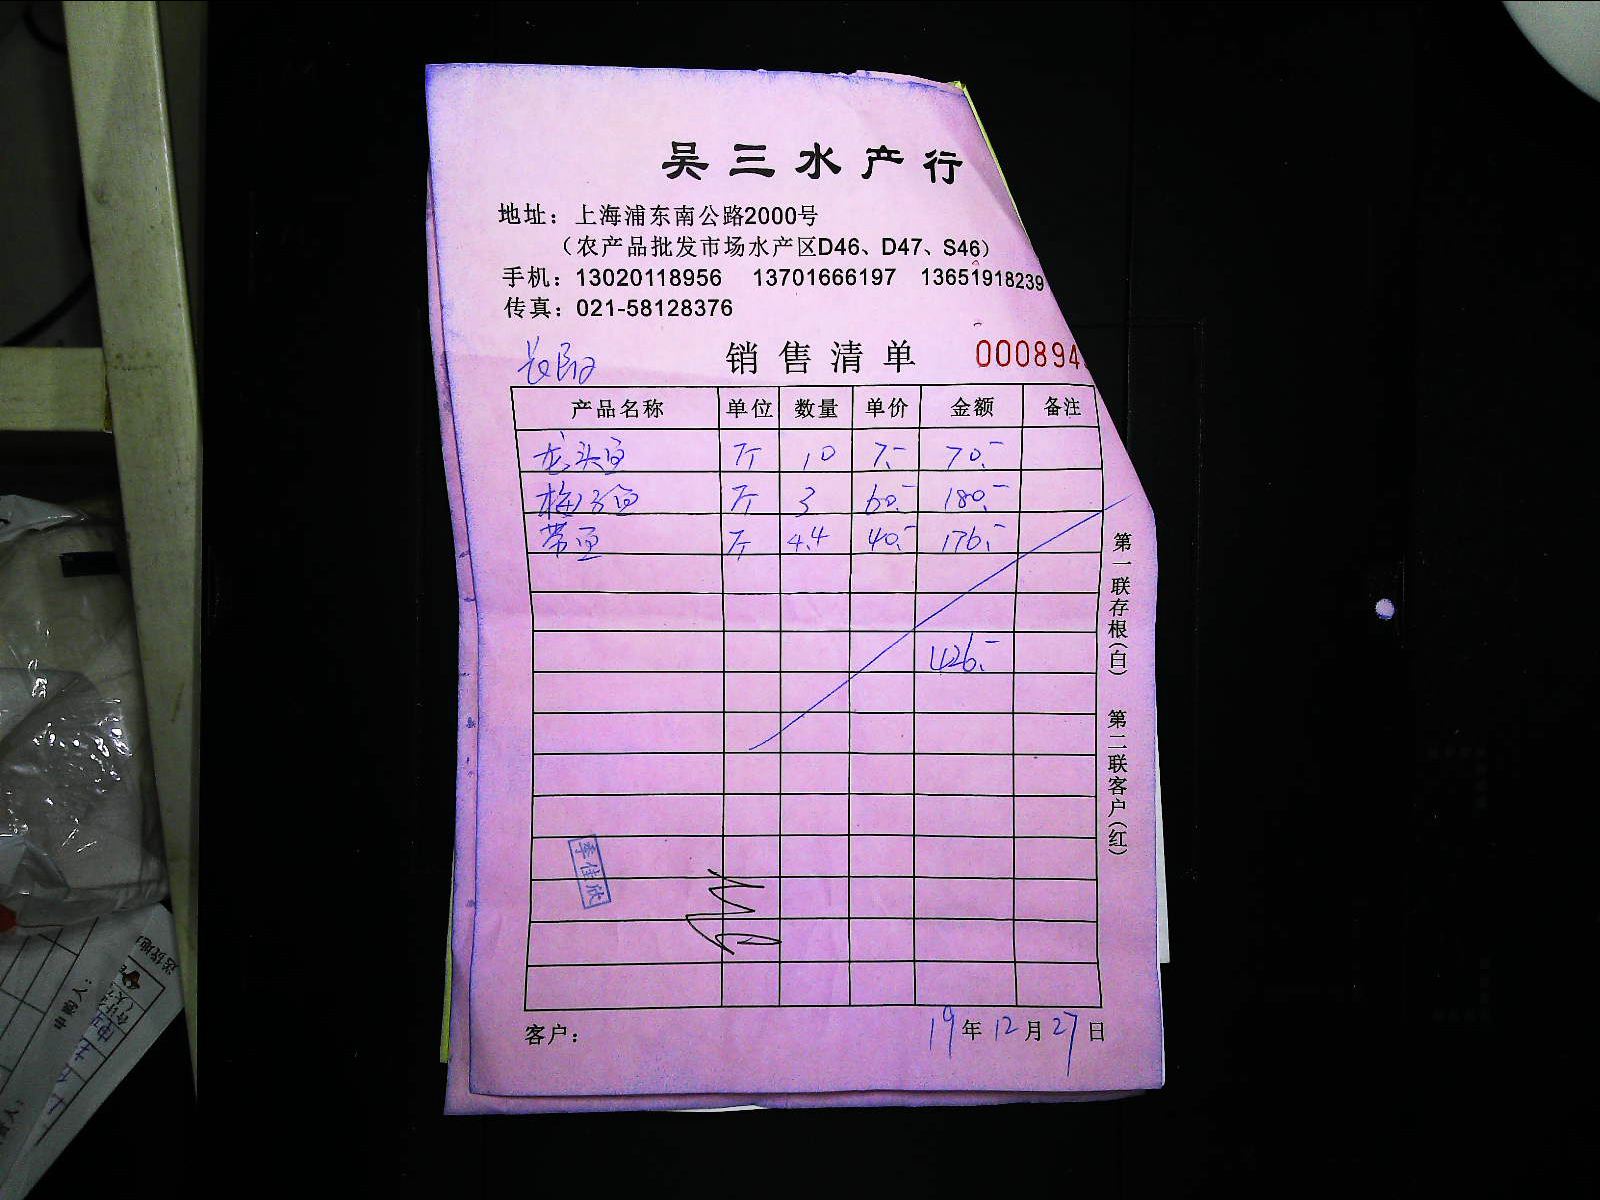 吴三水产行
地址：上海浦东南公路2000号
（农产品批发市场水产区D46、D47、S46）
手机：13020118956 13701666197 13651918239
传真：021-58128376
长阳
销售清单 000894
产品名称 单位 数量 单价 金额 备注
龙头鱼 斤 10 7.- 70.-
梅子鱼 斤 3 60.- 180.-
带鱼 斤 4.4 40.- 176.-
426.-
第一联存根（白） 第二联客户（红）
李佳欣
客户： 19年12月27日
送货地
申购人：